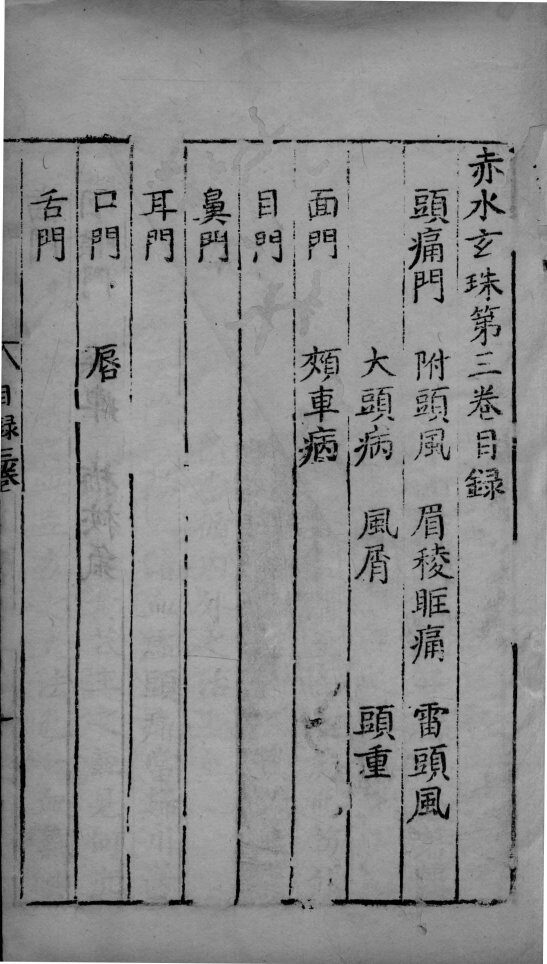 赤水玄珠第三卷目録
頭痛門 附頭風 眉稜眶痛 雷頭風
大頭病 風屑 頭重
面門 頰車病
目門
鼻門
耳門
口門 唇
舌門
目録三卷